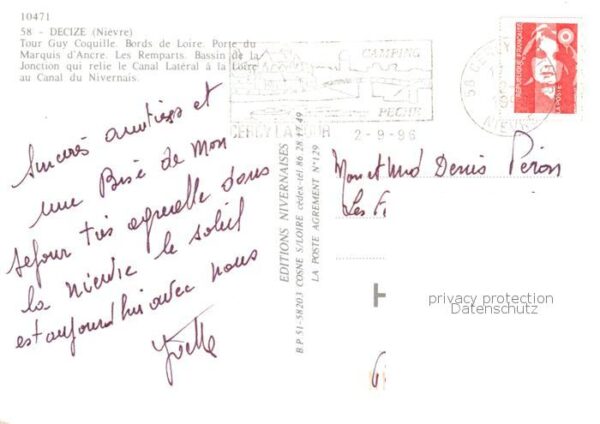 10471
58 - DECIZE (Nièvre)
Tour Guy Coquille. Bords de Loire. Porte du
Marquis d'Ancre. Les Remparts. Bassin de la
Jonction qui relie le Canal Latéral à la Loire
au Canal du Nivernais.
CAMPING
PECHE
CERCY LA TOUR
2-9-96
58 CERCY
NIEVRE
REPUBLIQUE FRANÇAISE
LA POSTE
Sincères amitiés et
une Bise de Mon
sejour très agreable dans
la nièvre le soleil
est aujourd'hui avec nous
Yvette
EDITIONS NIVERNAISES
B.P 51-58203 COSNE S/LOIRE cédex-tél.86 28 17 49
LA POSTE AGREMENT N°129
Mr et Md Denis Peron
Les
privacy protection
Datenschutz